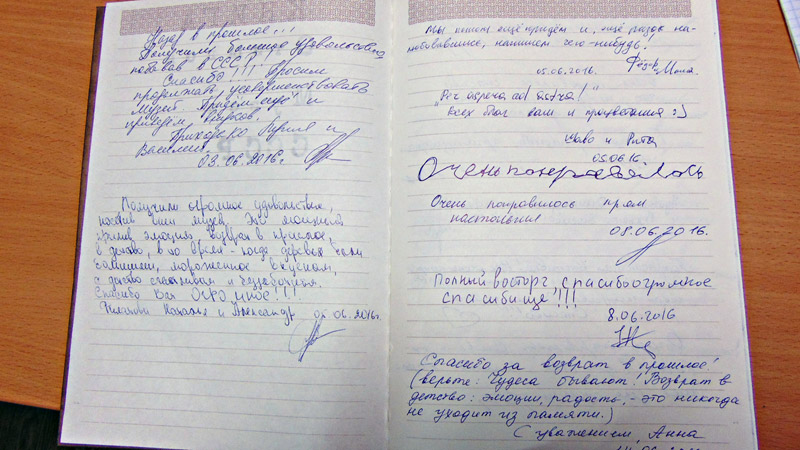 Назад в прошлое!!!
Получили большое удовольствие
побывав в СССР.
Спасибо!!! Просим
продолжать усовершенствовать
музей. Придем ещё и
приведем внуков.
и
Василий. 03.06.2016г.
Получили огромное удовольствие,
посетив ваш музей. Это мощный
прилив эмоций, возврат в прошлое,
в детство, в то время - когда деревья были
большими, мороженное вкусным,
а детство счастливым и беззаботным.
Спасибо Вам ОГРОМНОЕ!!!
Наталья и Александр 05.06.2016г.
Мы может ещё придём и, ещё раз
полюбовавшись, напишем что-нибудь!
05.06.2016.
„Per aspera ad astra!"
Всех благ вам и процветания :)
и Рита
05.06.16.
Очень понравилось
Очень понравилось прям
настольгия
08.06.2016.
Полный восторг, спасибо огромное
спасибище!!!
8.06.2016
Спасибо за возврат в прошлое!
(верьте: Чудеса бывают! Возврат в
детство: эмоции, радость, - это никогда
не уходит из памяти.)
С уважением, Анна